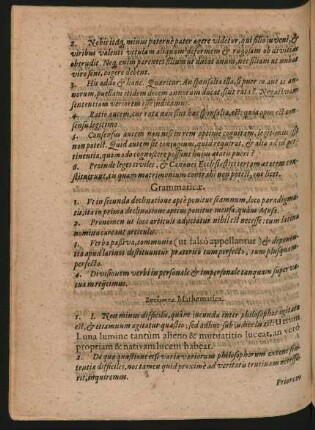 2. Nobis itaq; minus paternè pater agere videtur, qui filio juveni, &
viribus valenti vetulam aliquam deformem & rugosam ob divitias
obtrudit. Neq; enim parentes filium ut ducat anum, nec filiam ut nubat
viro seni, cogere debent.
3. Huc addo & hanc. Quæritur: An sponsalia illa, si puer
annorum, puellam etiam decem annorum ducat, sint rata? Negativam
sententiam veriorem esse judicamus.
4. Ratio autem, cur rata non sint hæc sponsalia, est: quia opus est con-
sensu legitimo.
5. Consensus autem non nisi in rem opt imè cognitam, legitimus esse
non potest. Quid autem sit conjugium, quid requirat, & alia ad id per-
tinentia, quomodo cognoscere possunt hujus ætatis pueri?
6. Proinde leges civiles, & Canones Ecclesiastici certam ætatem con-
stituerunt, in quam matrimonium contrahi non potest, nec licet.
Grammaticæ.
1. Ut in secunda declinatione aptè ponitur scamnum, loco paradigma-
tis, ita in prima declinatione aptius ponitur mensa, quàm Musa.
2. Pronomen ut loco articuli adjiciatur nihil est necesse: cum latina
nomina careant articulo.
3. Verba passiva, communia (ut falsò appellantur) & deponen-
tia apud latinos destituuntur præterito tum perfecto, tum plusquam
perfecto.
4. Divisionem verbi in personale & impersonale tanquam superva-
neam rejicimus.
Mathematica.
1. I. Non minus difficilis, quàm jucunda inter philosophos agitata
est, & etiamnum agitatur quæstio, sed adhuc sub judice lis est: Utrum
Luna lumine tantùm alieno & mutuatitio luceat, an verò
propriam & nativam lucem habeat.
2. De qua quæstione etsi variæ variorum philosophorum extent sen-
tentiæ difficiles, nos tamen quid proximè ad veritatem nobis accedere
inquiremus.
Priorem